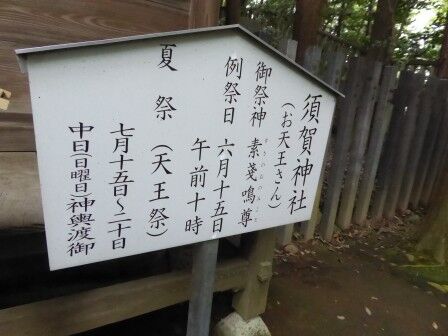 須賀神社
（お天王さん）
御祭神 素戔鳴尊
例祭日 六月十五日
午前十時
夏祭（天王祭）
七月十五日～二十日
中日（日曜日）神輿渡御